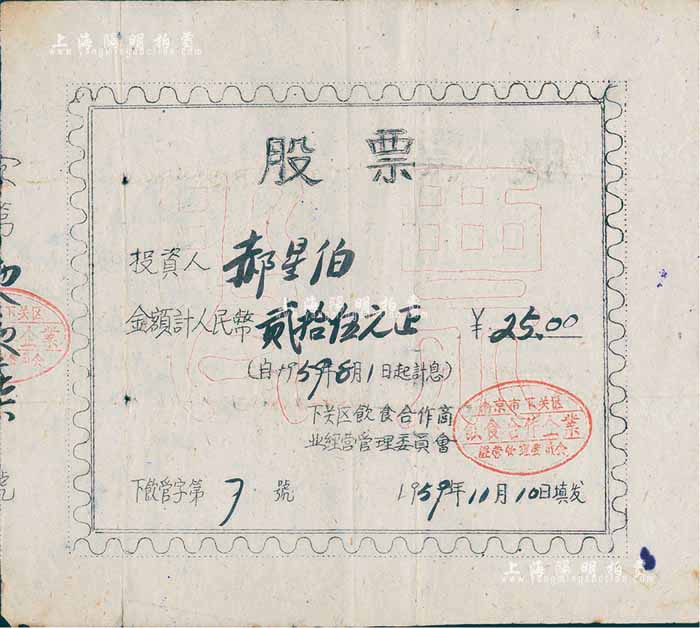 上海陽明拍賣
www.yangmingauction.com
股票
投資人 郝星伯
金額計人民幣貳拾伍元正 ¥25.00
(自1959年8月1日起計息)
下关区飲食合作商
业經营管理委員會
南京市下关区
飲食合作企業
經營管理委員会
下飲管字第 7 號
1959年11月10日填发
字第
號
上海陽明拍賣
www.yangmingauction.com